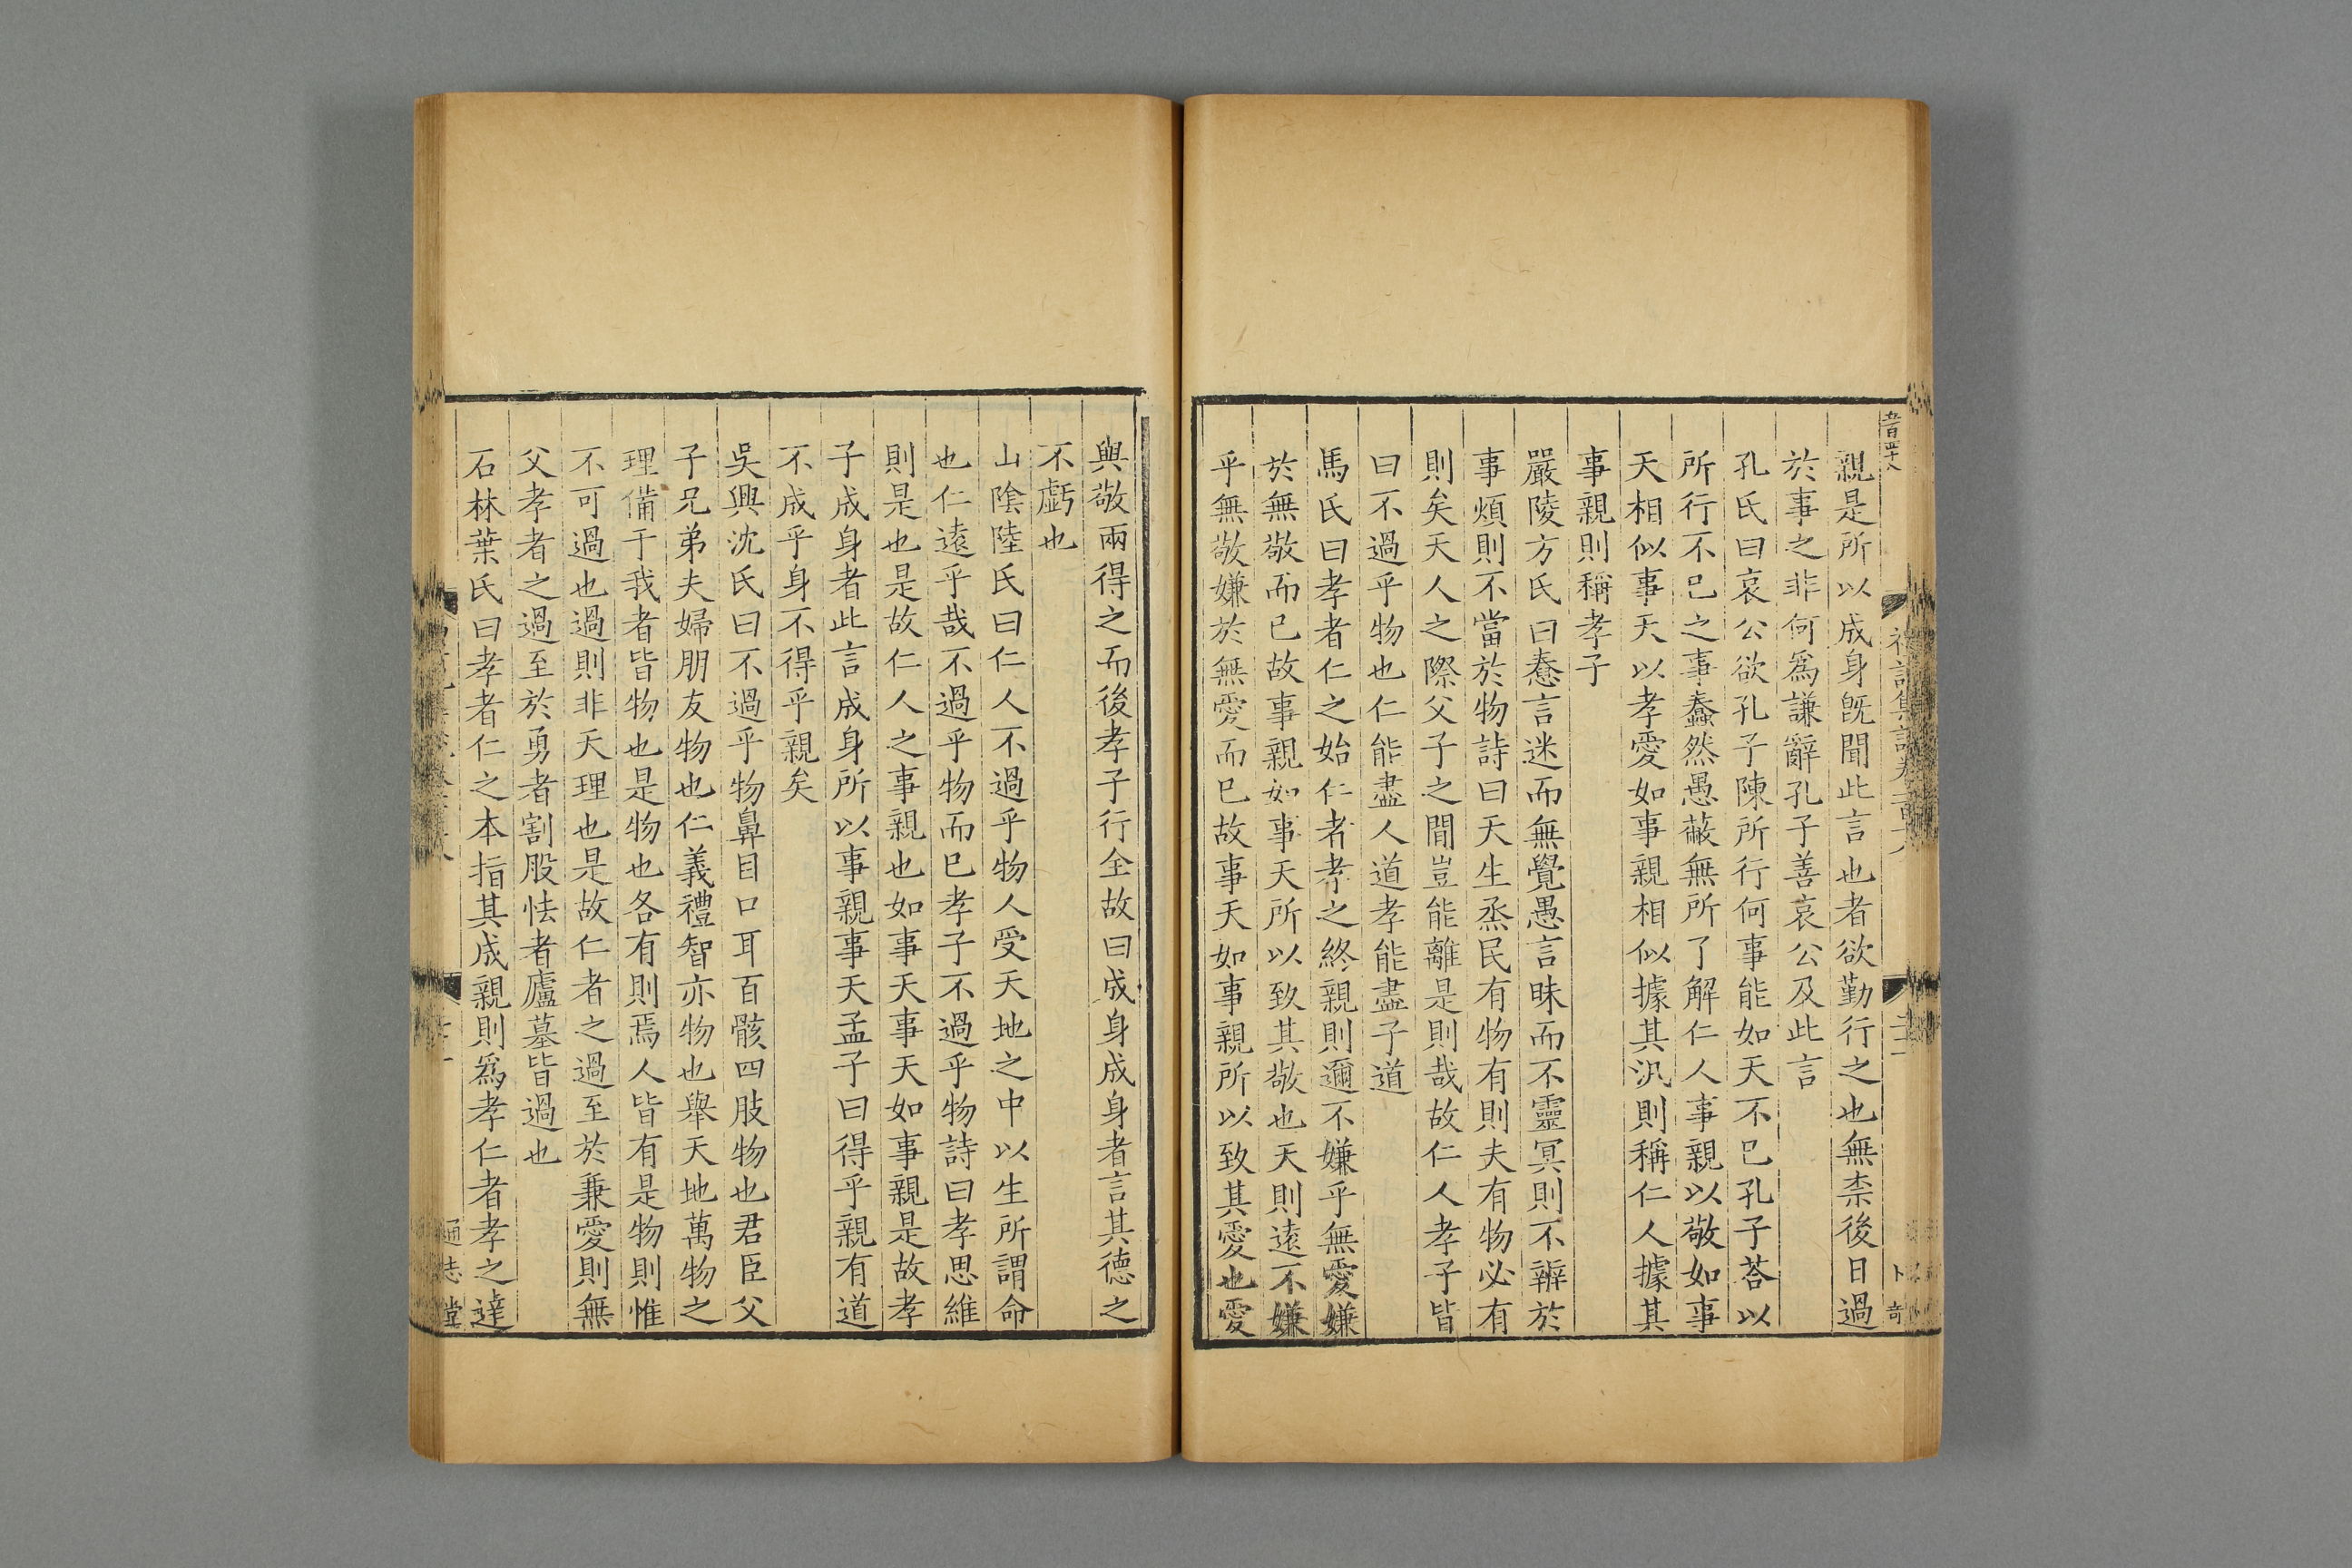 親是所以成身旣聞此言也者欲勤行之也無柰後日過
於事之非何爲謙辭孔子善哀公及此言
孔氏曰哀公欲孔子陳所行何事能如天不已孔子荅以
所行不已之事蠢然愚蔽無所了解仁人事親以敬如事
天相似事天以孝愛如事親相似據其汎則稱仁人據其
事親則稱孝子
嚴陵方氏曰憃言迷而無覺愚言昧而不靈冥則不辨於
事煩則不當於物詩曰天生烝民有物有則夫有物必有
則矣天人之際父子之間豈能離是則哉故仁人孝子皆
曰不過乎物也仁能盡人道孝能盡子道
馬氏曰孝者仁之始仁者孝之終親則邇不嫌乎無愛嫌
於無敬而已故事親如事天所以致其敬也天則遠不嫌
乎無敬嫌於無愛而已故事天如事親所以致其愛也愛
與敬兩得之而後孝子行全故曰成身成身者言其德之
不虧也
山陰陸氏曰仁人不過乎物人受天地之中以生所謂命
也仁遠乎哉不過乎物而已孝子不過乎物詩曰孝思維
則是也是故仁人之事親也如事天事天如事親是故孝
子成身者此言成身所以事親事天孟子曰得乎親有道
不成乎身不得乎親矣
吳興沈氏曰不過乎物鼻目口耳百骸四肢物也君臣父
子兄弟夫婦朋友物也仁義禮智亦物也舉天地萬物之
理備于我者皆物也是物也各有則焉人皆有是物則惟
不可過也過則非天理也是故仁者之過至於兼愛則無
父孝者之過至於勇者割股怯者廬墓皆過也
石林葉氏曰孝者仁之本指其成親則爲孝仁者孝之達
通志堂